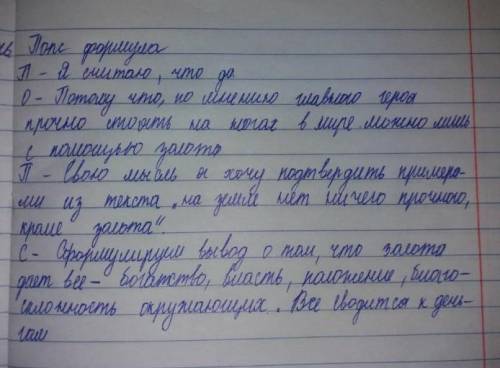 Попс формула
П - Я считаю, что да
О - Потому что, по мнению главного героя
прочно стоять на ногах в мире можно лишь
с помощью золота
П - Свою мысль я хочу подтвердить примера-
ми из текста „на земле нет ничего прочного,
кроме золота".
С - Сформулируем вывод о том, что золото
дает все - богатство, власть, положение, благо-
склонность окружающих. Все сводится к день-
гам